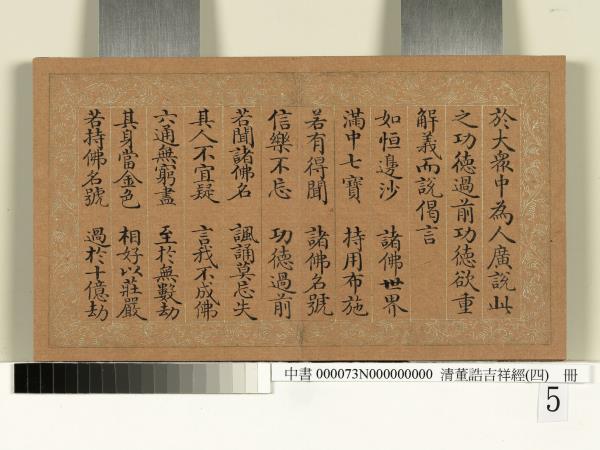 於大眾中為人廣說此
之功德過前功德欲重
解義而說偈言
如恒邊沙　諸佛世界
滿中七寶　持用布施
若有得聞　諸佛名號
信樂不忘　功德過前
若聞諸佛名　諷誦莫忘失
其人不宜疑　言我不成佛
六通無窮盡　至於無數劫
其身當金色　相好以莊嚴
若持佛名號　過於十億劫
中書 000073N000000000 清董誥吉祥經(四) 冊
5